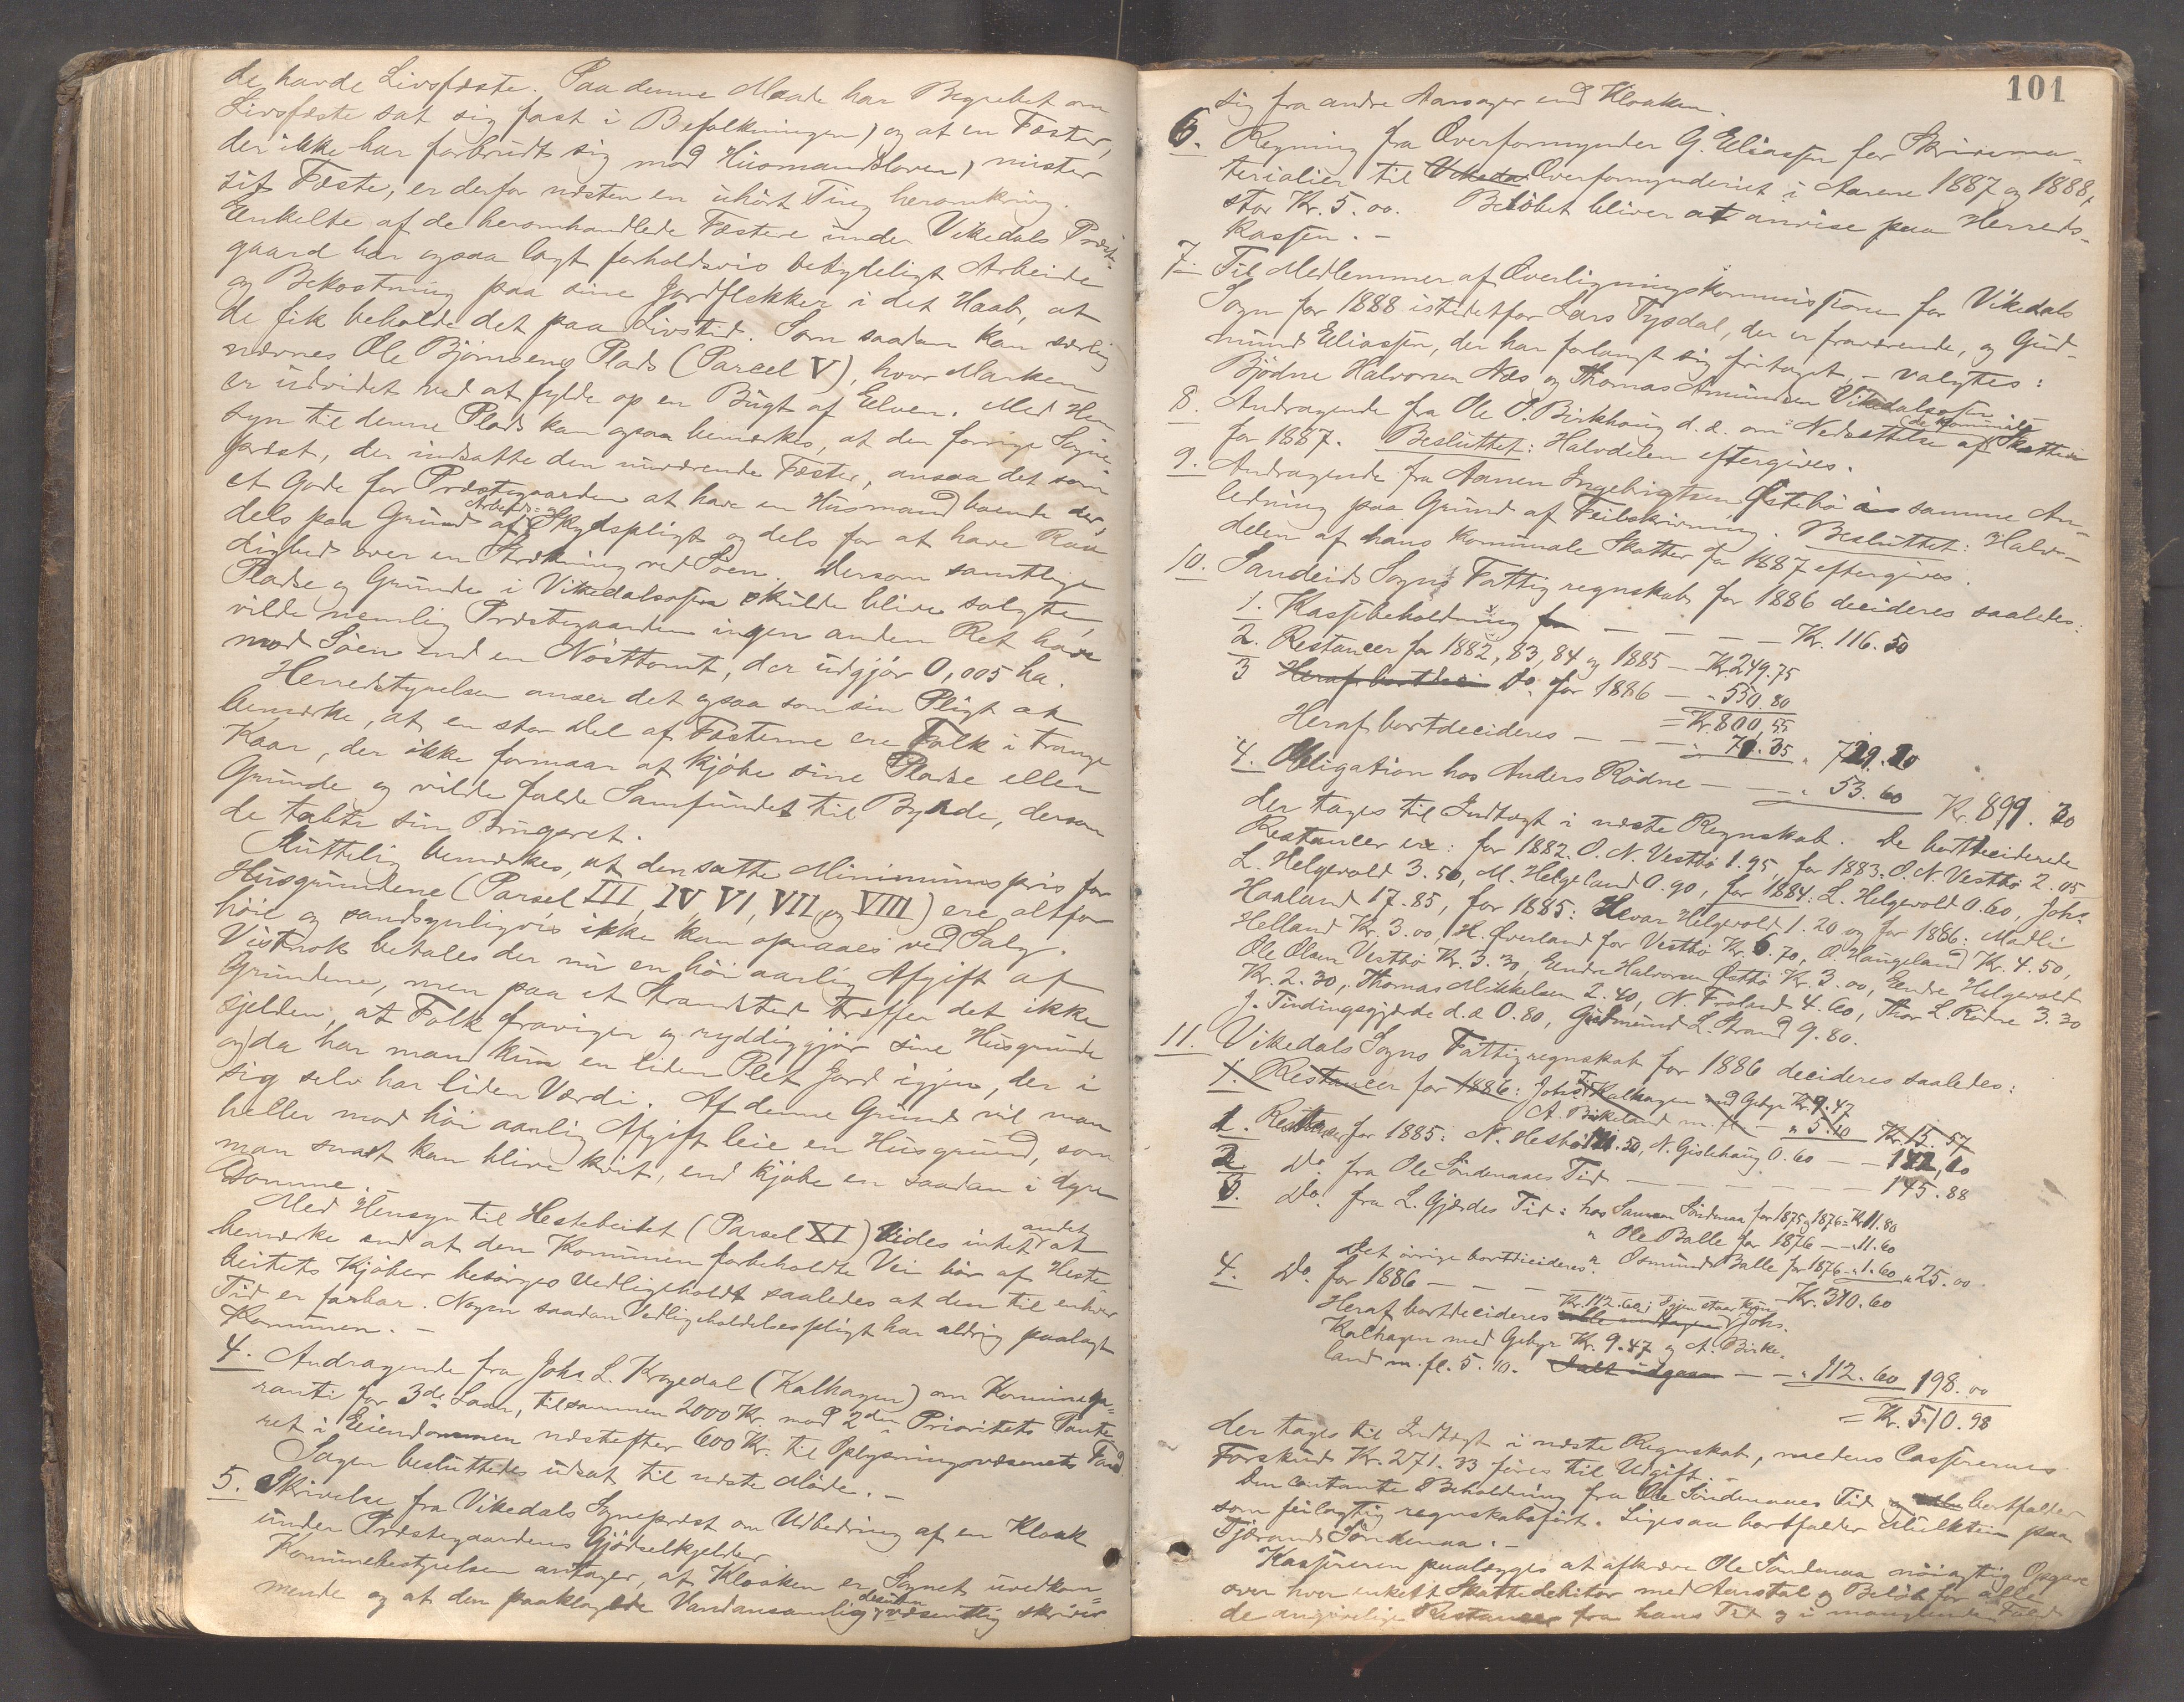 de havde Livsfæste. Paa denne Maade har Begrebet om
Livsfæste sat sig fast i Befolkningen, og at en Fæster,
der ikke har forbrudt sig mod Husmandsloven, mister
sit Fæste, er derfor næsten en uhørt Ting heromkring.
Enkelte af de heromhandlede Fæstere under Vikedals Præst-
gaard har ogsaa lagt forholdsvis betydeligt Arbeide
og Bekostning paa sine Jordflekker i det Haab, at
de fik beholde det paa Livstid. Som saadan kan særlig
nævnes Ole Bjørnsens Plads (Parcel V), hvor Marken
er udvidet ved at fylde op en Bugt af Elven. Med Hen
syn til denne Plads kan ogsaa bemærkes, at den forrige Sogne-
præst, der indsatte den nuværende Fæster, ansaa det som
et Gode for Præstegaarden at have en Husmand boende der,
dels paa Grund af Arbeids- og Skydspligt og dels for at have Raa
dighed over en Strækning ved Søen. Dersom samtlige
Pladse og Grunde i Vikedalsosen skulde blive solgte,
vilde nemlig Præstegaarden ingen anden Ret have
mod Søen end en Nøsttomt, der udgjør 0,005 ha.
Herredstyrelsen anser det ogsaa som sin Pligt at
bemærke, at en stor Del af Fæsterne ere Folk i trange
Kaar, der ikke formaar at kjøbe sine Pladse eller
Grunde og vilde falde Samfundet til Byrde, dersom
de tabte sin Brugsret.
Sluttelig bemærkes, at den satte Minimumspris for
Husgrundene (Parsel III, IV, VI, VII og VIII) ere altfor
høie og sandsynligvis ikke kan opnaaes ved Salg.
Vistnok betales der nu en høi aarlig Afgift af
Grundene, men paa et Strandsted træffer det ikke
sjelden, at Folk fraviger og ryddiggjør sine Husgrunde
og da har man kun en liden Plet Jord igjen, der i
sig selv har liden Værdi. Af denne Grund vil man
heller mod høi aarlig Afgift leie en Husgrund, som
man snart kan blive kvit, end kjøbe en saadan i dyre
Domme.
Med Hensyn til Hestebeitet (Parsel XI) vides intet andet at
bemærke end at den Kommunen forbeholdte Vei bør af Heste
beitets Kjøber besørges vedligeholdt saaledes at den til enhver
Tid er farbar. Nogen saadan Vedligeholdelsespligt har aldrig paalagt
Kommunen. —
4. Andragende fra Johs. L. Krogedal (Kalhagen) om Kommunega-
ranti for 3de Laan, tilsammen 2000 Kr. mod 2den Prioritets Pante
ret i Eiendommen næstefter 600 Kr. til Oplysningsvæsenets Fond.
Sagen besluttedes udsat til næste Møde. —
5. Skrivelse fra Vikedals Sogneprest om Udbedring af en Kloak
under Præstegaardens Gjødselkjelder.
Kommunebestyrelsen antager, at Kloaken er Sognet uvedkom-
mende og at den paaklagede Vandansamling desuden væsentlig skriver
101
sig fra andre Aarsager end Kloaken.
6. Regning fra Overformynder G. Eliassen for Skrivema-
terialier til Overformynderiet i Aarene 1887 og 1888,
stor Kr. 5.00. Beløbet bliver at anvise paa Herreds-
kassen. —
7. Til Medlemmer af Overligningskommissionen for Vikedals
Sogn for 1888 istedetfor Lars Tysdal, der er fraværende, og Gud-
mund Eliassen, der har forlangt sig fritaget, — valgtes:
Bjødne Halvorsen Næs og Thomas Amundsen Vikedalsosen
8. Andragende fra Ole O. Birkhaug d. æ. om Nedsættelse af de kommunale Skatter
for 1887. Besluttet: Halvdelen eftergives.
9. Andragende fra Aanen Ingebrigtsen Østebø i samme An-
ledning paa Grund af Feilskrivning. Besluttet: Halv-
delen af hans kommunale Skatter for 1887 eftergives.
10. Sandeids Sogns Fattigregnskab for 1886 decideres saaledes:
1. Kassebeholdning — — — — Kr. 116.50
2. Restancer for 1882, 83, 84 og 1885 — Kr. 249.75
3 Do. for 1886 — " 550.80
= Kr. 800,55
Heraf bortdecideres — — — " 71.35 " 729.20
4. Obligation hos Anders Rødne — — " 53.60 Kr. 899.20
der tages til Indtægt i næste Regnskab. De bortdeciderede
Restancer ere: for 1882. O. N. Vestbø 1.95, for 1883. O. N. Vestbø 2.05
L. Helgevold 3.50, M. Helgeland 0.90, for 1884: L. Helgevold 0.60, Johs.
Haaland 17.85, for 1885: Ivar Helgevold 1.20 og for 1886: Madli
Helland Kr. 3.00, H. Øverland for Vestbø Kr. 6.70, O. Haugeland Kr. 4.50,
Ole Olsen Vestbø Kr. 3.30, Endre Halvorsen Østbø Kr. 3.00, Endre Helgevold
Kr. 2.30, Thomas Mikkelsen 2.40, N. Frøland 4.60, Thor L. Rødne 3.30
J. Tindingsgjerde d. æ 0.80, Gudmund L. Strand 9.80.
11. Vikedals Sogns Fattigregnskab for 1886 decideres saaledes:
1. Restancer for 1886: Johs. Kalhagen med Gebyr Kr. 9.47
A. Birkeland m. fl. — " 5.10 Kr. 15.57
1. Restancer for 1885: N. Hesbø 50, N. Gislehaug 0.60 — —
2 Do. fra Ole Søndenaaes Tid — — — — — 145.88
3. Do. fra L. Gjerdes Tid: hos Samson Søndenaa for 1875 og 1876 = Kr. 11.80
" Ole Balle for 1876 — — " 11.60
" Osmund Balle for 1876 — " 1.60 " 25.00
Det øvrige bortdecideres.
4. Do. for 1886 — — — — — Kr. 310.60
Heraf bortdecideres Kr. 112.60; igjen staar kun Johs.
Kalhagen med Gebyr Kr. 9.47 og A. Birke-
land m. fl. 5.10. — — " 112.60 198.00
= Kr. 510.98
der tages til Indtægt i næste Regnskab, medens Casserernes
Forskud Kr. 271.33 føres til Udgift. —
Den contante Beholdning fra Ole Søndenaaes Tid bortfalder
som feilagtig regnskabsført. Ligesaa bortfalder Mulkten paa
Tjerand Søndenaa. —
Kassereren paalægges at afkræve Ole Søndenaa nøiagtig Opgave
over hver enkelt Skattedebitor med Aarstal og Beløb for alle
de angivelige Restancer fra hans Tid og i manglende Fald